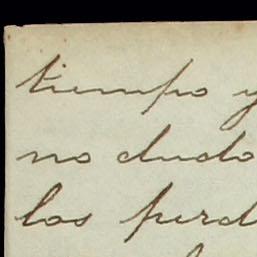 tiempo y
no dudo
los perd